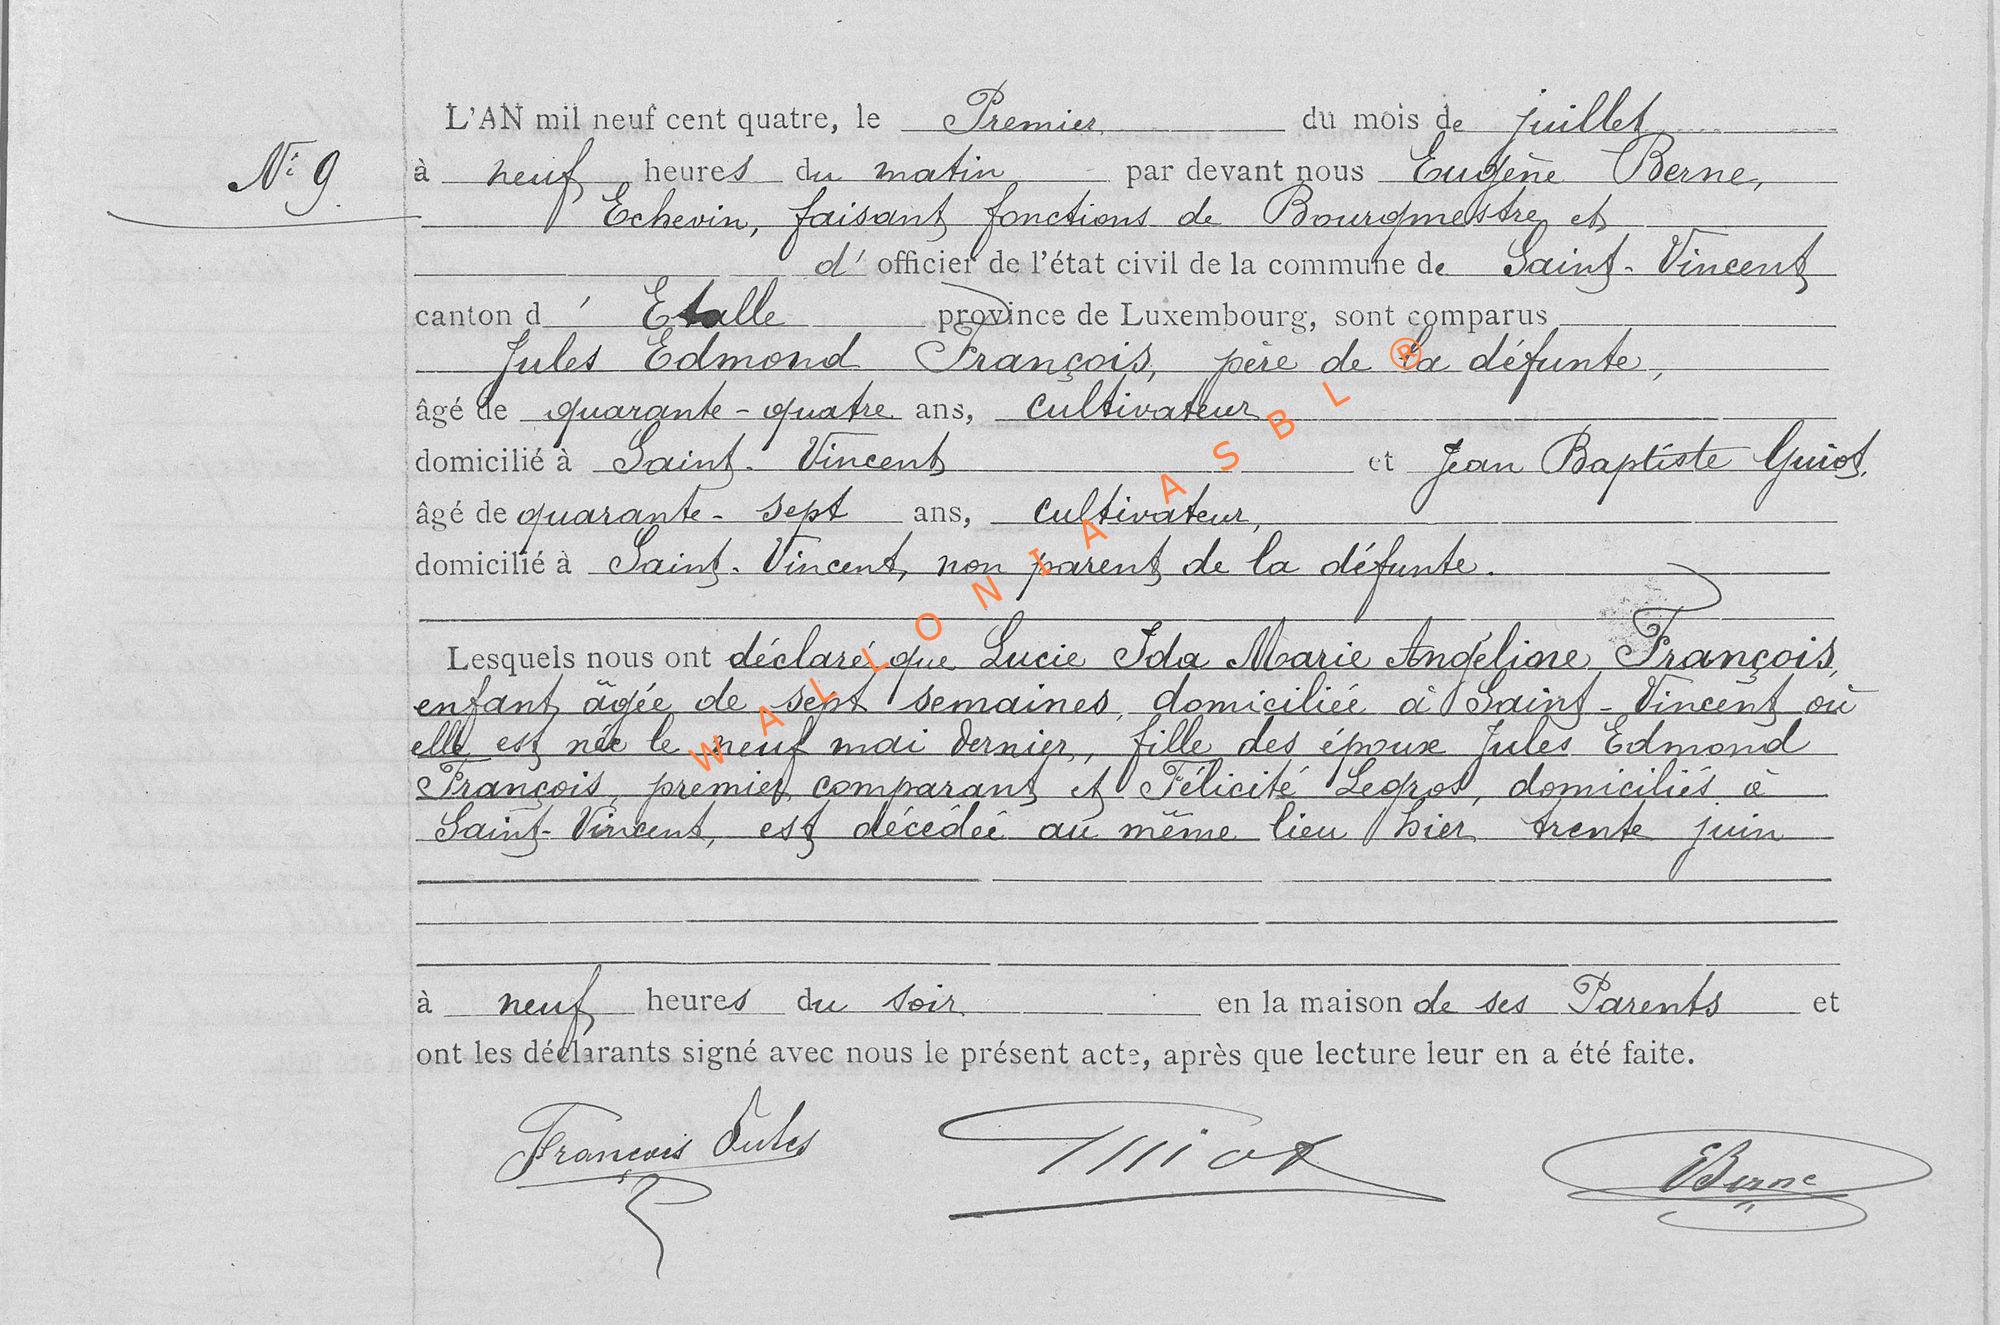 L'AN mil neuf cent quatre, le Premier du mois de juillet
N° 9
à neuf heures du matin par devant nous Eugène Berne,
Echevin, faisant fonctions de Bourgmestre et
d' officier de l'état civil de la commune de Saint-Vincent
canton d' Etalle province de Luxembourg, sont comparus
Jules Edmond François, père de la défunte,
âgé de quarante-quatre ans, cultivateur
domicilié à Saint-Vincent et Jean Baptiste Guiot,
âgé de quarante-sept ans, cultivateur,
domicilié à Saint-Vincent, non parent de la défunte.
Lesquels nous ont déclaré que Lucie Ida Marie Angéline François,
enfant âgée de sept semaines, domiciliée à Saint-Vincent où
elle est née le neuf mai dernier, fille des époux Jules Edmond
François, premier comparant et Félicité Legros, domiciliés à
Saint-Vincent, est décédée au même lieu hier trente juin
à neuf heures du soir en la maison de ses Parents et
ont les déclarants signé avec nous le présent acte, après que lecture leur en a été faite.
François Jules Guiot EBerne
WALLONIA ASBL ®